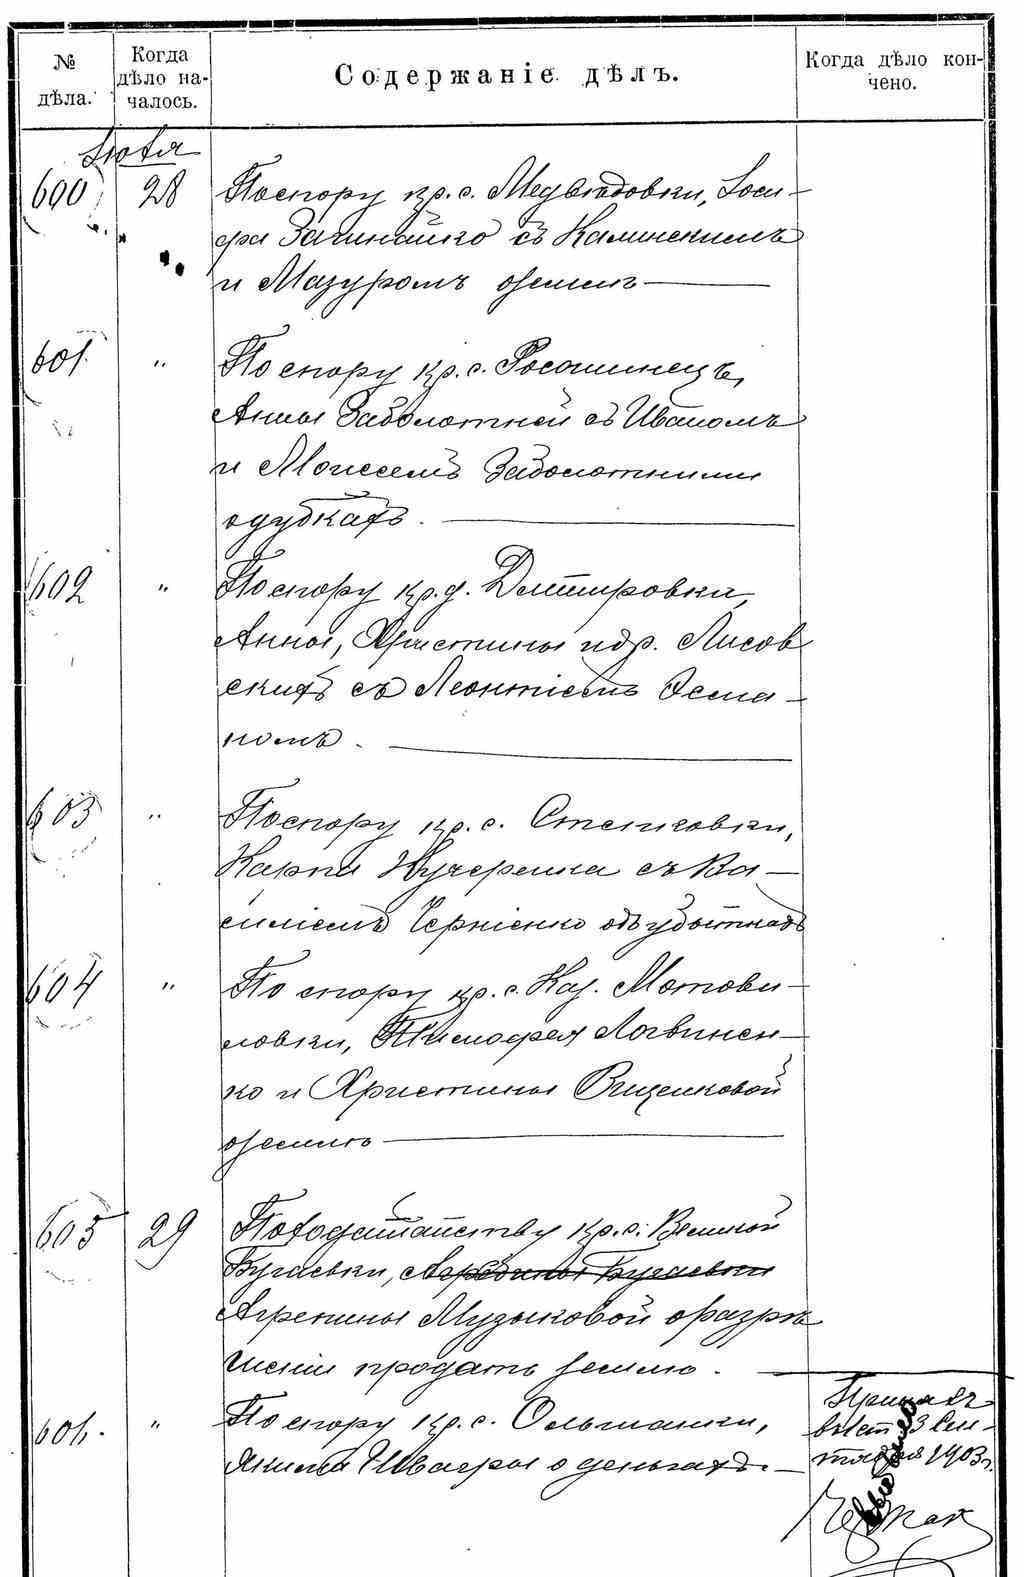 № дѣла.
Когда дѣло на-
чалось.
Содержаніе дѣлъ.
Когда дѣло кон-
чено.
600 28 По спору кр. с. Медвѣдовки, Іоси-
фа Загинайко съ Калинскимъ
и Мазуромъ о землѣ
601 " По спору кр. с. Росошинецъ,
Анны Заболотней съ Иваномъ
и Моисеемъ Заболотними
о дубкахъ.
602 " По спору кр. д. Дмитровки,
Анны, Христины и др. Лисов
скихъ съ Леонтіемъ Осма-
номъ.
603 " По спору кр. с. Степковки,
Карпа Кучеренка съ Ва-
силіемъ Черніенко объ убыткахъ
604 " По спору кр. с. Каз. Мотови-
ловки, Тимофея Логвинен-
ко и Христины Вищенковой
о землѣ
605 29 По ходатайству кр. с. Великой
Бугаевки,
Агрепины Музыковой о разрѣ
шеніи продать землю.
606. " По спору кр. с. Ольшанки,
Якима Швагры о деньгахъ.
3 Сен-
тября 1903 г.